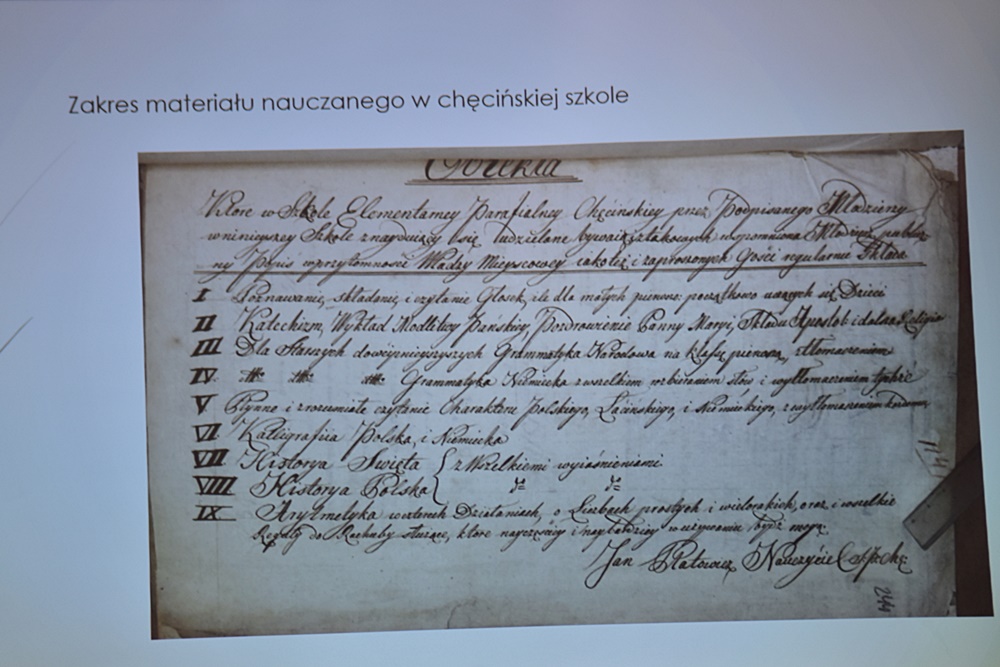 Zakres materiału nauczanego w chęcińskiej szkole
Obiekta
Ktore w Szkole Elementarney Parafialney Chęcinskiey przez Podpisanego Młodzieży
w ninieyszey Szkole znayduiącey się udzielane bywaią z takowych wspomniona Młodzież
ny Popis w przytomności Władzy Mieyscowey iakoteż i zaproszonych Gości regularnie Składa
I Poznawanie, składanie, i czytanie Głosek, ile dla małych pierwszo: początkowo uczących się Dzieci
II Katechizm, Wykład Modlitwy Pańskiey, Pozdrowienie Panny Maryi, Składu Apostol: i dalsza Religia
III Dla Starszych dowcipnieyszych Grammatyka Narodowa na klassę pierwszą, z tłomaczeniem
IV. Grammatyka Niemiecka z wszelkiem rozbieraniem słów i wytłomaczeniem
V Płynne i zrozumiałe czytanie Charakteru Polskiego, Łacińskiego, i Niemieckiego, z wytłomaczeniem
VI Kalligrafiia Polska i Niemiecka
VII Historya Swięta { z Wszelkiemi wyiaśnieniami
VIII Historya Polska
IX Arytmetyka w czterech Działaniach, o Liczbach prostych i wielorakich, oraz i wszelkie
Reguły do Rachuby służące, ktore nayczęściey i naybardziey w używaniu bydź mogą.
Jan Nauczyciel
174
244